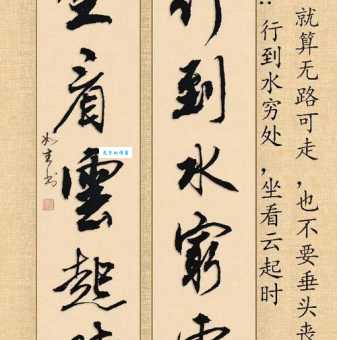 就算无路可走，也不要垂头丧
：：行到水穷处，坐看云起时
行到水窮處
坐看雲起時